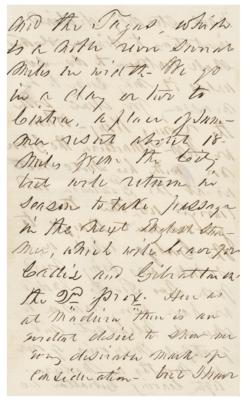 and the Tagus, which
is a noble river several
miles in width. We go
in a day or two to
Cintra, a place of sum-
mer resort about 18
miles from the City,
but will return in
season to take passage
in the next English stea-
mer, which will leave for
Cadiz and Gibraltar on
the 2d prox. Here as
at "Madeira" there is an
ardent desire to show me
every desirable mark of
consideration - but I have